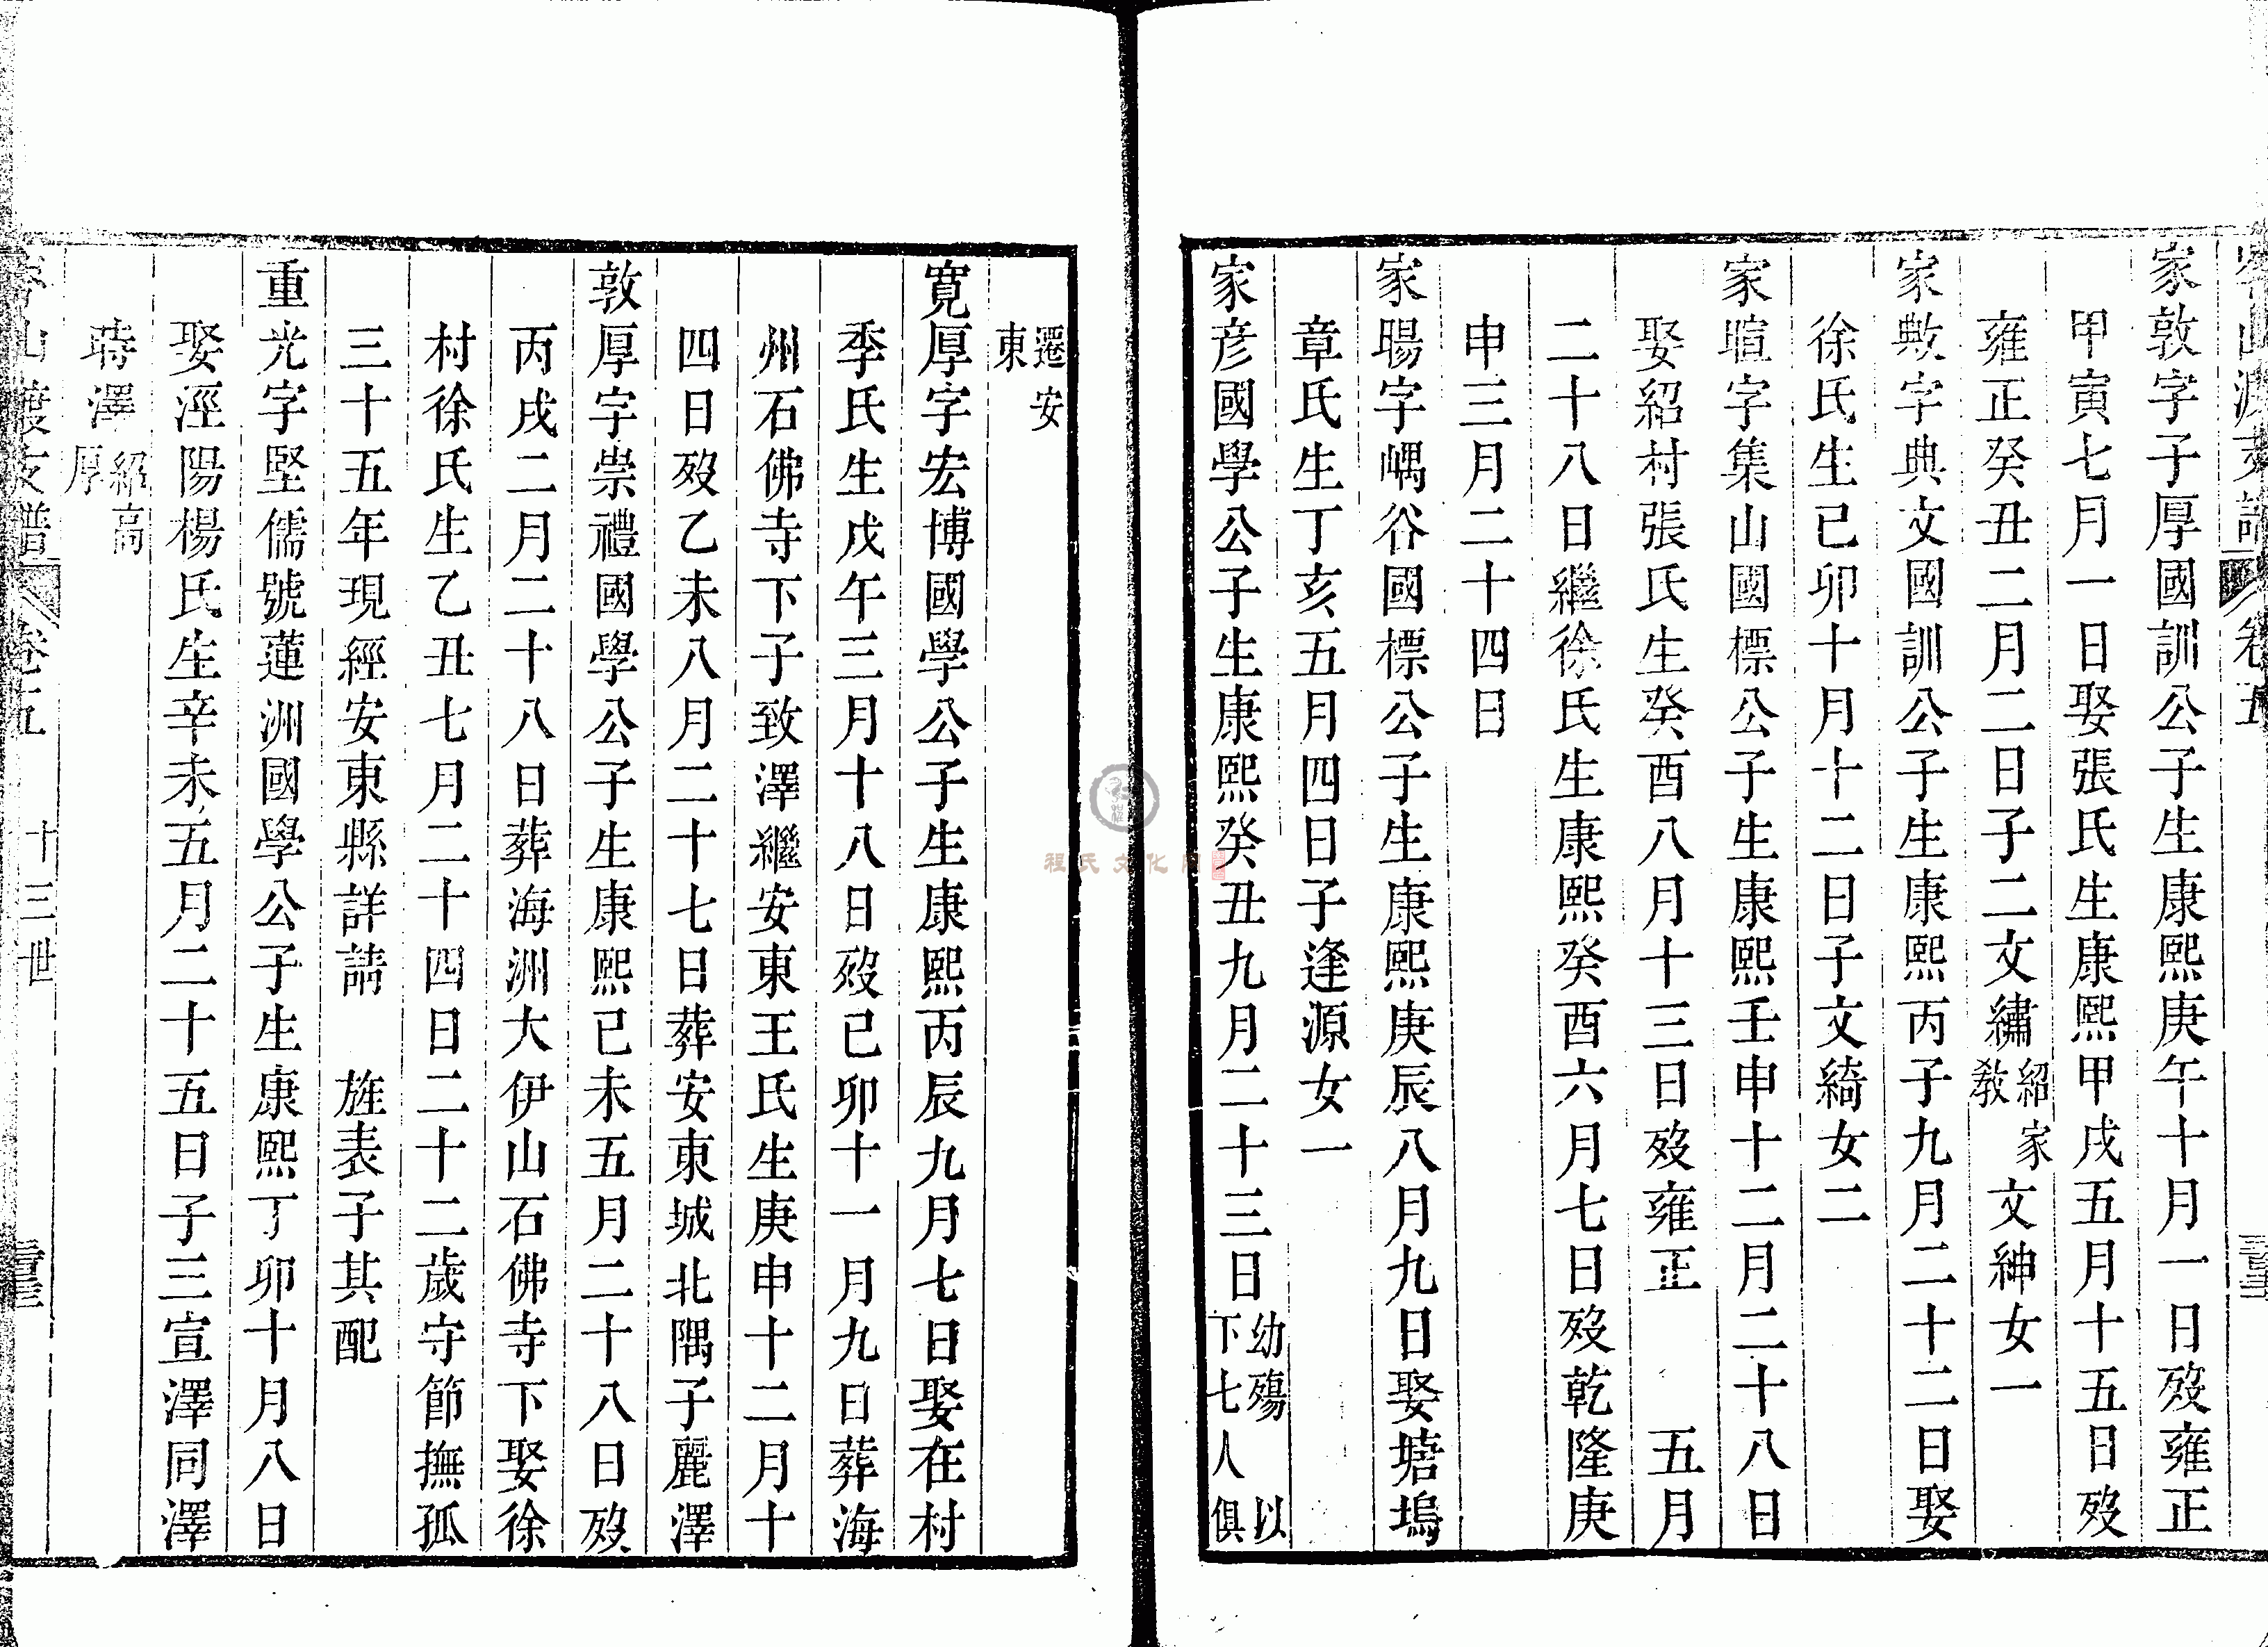 家敦字子厚國訓公子生康熙庚午十月一日歿雍正
甲寅七月一日娶張氏生康熙甲戌五月十五日歿
雍正癸丑二月二日子二文繡紹家敎文紳女一
家敟字典文國訓公子生康熙丙子九月二十二日娶
徐氏生己卯十月十二日子文綺女二
家暄字集山國標公子生康熙壬申十二月二十八日
娶紹村張氏生癸酉八月十三日歿雍正 五月
二十八日繼徐氏生康熙癸酉六月七日歿乾隆庚
申三月二十四日
家暘字嵎谷國標公子生康熙庚辰八月九日娶塘塢
章氏生丁亥五月四日子逢源女一
家彦國學公子生康熙癸丑九月二十三日幼殤以下七人俱
遷安東
寬厚字宏博國學公子生康熙丙辰九月七日娶在村
季氏生戊午三月十八日歿己卯十一月九日葬海
州石佛寺下子致澤繼安東王氏生庚申十二月十
四日歿乙未八月二十七日葬安東城北隅子麗澤
敦厚字崇禮國學公子生康熙己未五月二十八日歿
丙戌二月二十八日葬海洲大伊山石佛寺下娶徐
村徐氏生乙丑七月二十四日二十二歲守節撫孤
三十五年現經安東縣詳請 旌表子其配
重光字堅儒號蓮洲國學公子生康熙丁卯十月八日
娶涇陽楊氏生辛未五月二十五日子三宣澤同澤
時澤紹高厚
山渡支譜 卷五 十三世
程氏文化网